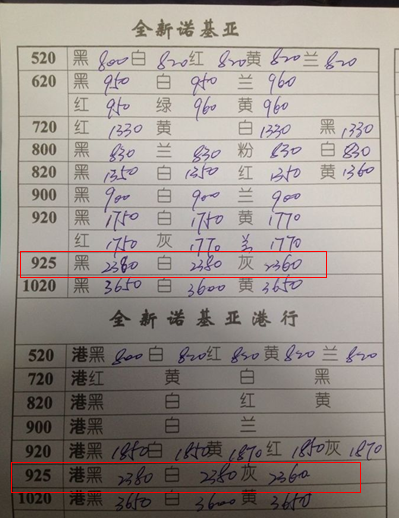 全新诺基亚
520 黑 800 白 820 红 820 黄 820 兰 820
620 黑 950 白 950 兰 960
红 950 绿 960 黄 960
720 红 1330 黄 白 1330 黑 1330
800 黑 830 兰 830 粉 830 白 830
820 黑 1350 白 1350 红 1350 黄 1360
900 黑 900 白 900 兰 900
920 黑 1750 白 1750 黄 1770
红 1750 灰 1770 兰 1770
925 黑 2380 白 2380 灰 2360
1020 黑 3650 白 3600 黄 3650
全新诺基亚港行
520 港黑 800 白 820 红 820 黄 820 兰 820
720 港红 黄 白 黑
820 港黑 白 红 黄
900 港黑 白 兰
920 港黑 1850 白 1850 黄 1870 红 1850 灰 1870
925 港黑 2380 白 2380 灰 2360
1020 港黑 3650 白 3600 黄 3650